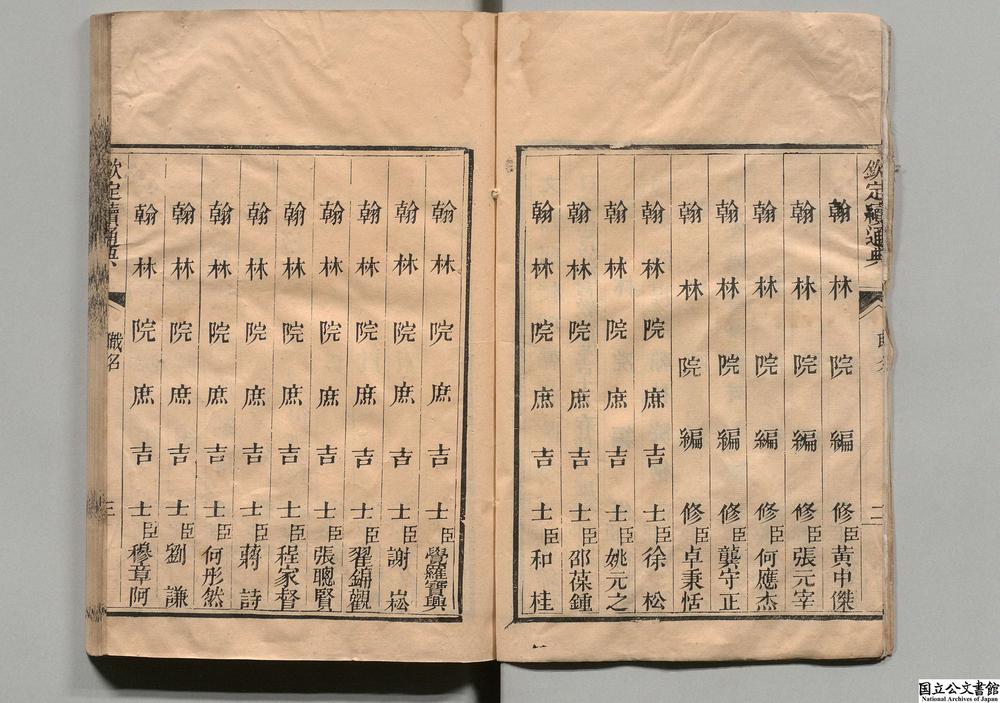 欽定續通典
翰林院編修臣黃中傑
翰林院編修臣張元宰
翰林院編修臣何應杰
翰林院編修臣龔守正
翰林院編修臣卓秉恬
翰林院庶吉士臣徐松
翰林院庶吉士臣姚元之
翰林院庶吉士臣邵葆鍾
翰林院庶吉士臣和桂
翰林院庶吉士臣覺羅寶興
翰林院庶吉士臣謝崧
翰林院庶吉士臣翟錦觀
翰林院庶吉士臣張聰賢
翰林院庶吉士臣程家督
翰林院庶吉士臣蔣詩
翰林院庶吉士臣何彤然
翰林院庶吉士臣劉謙
翰林院庶吉士臣穆章阿
欽定續通典
職名
三
国立公文書館
National Archives of Japan